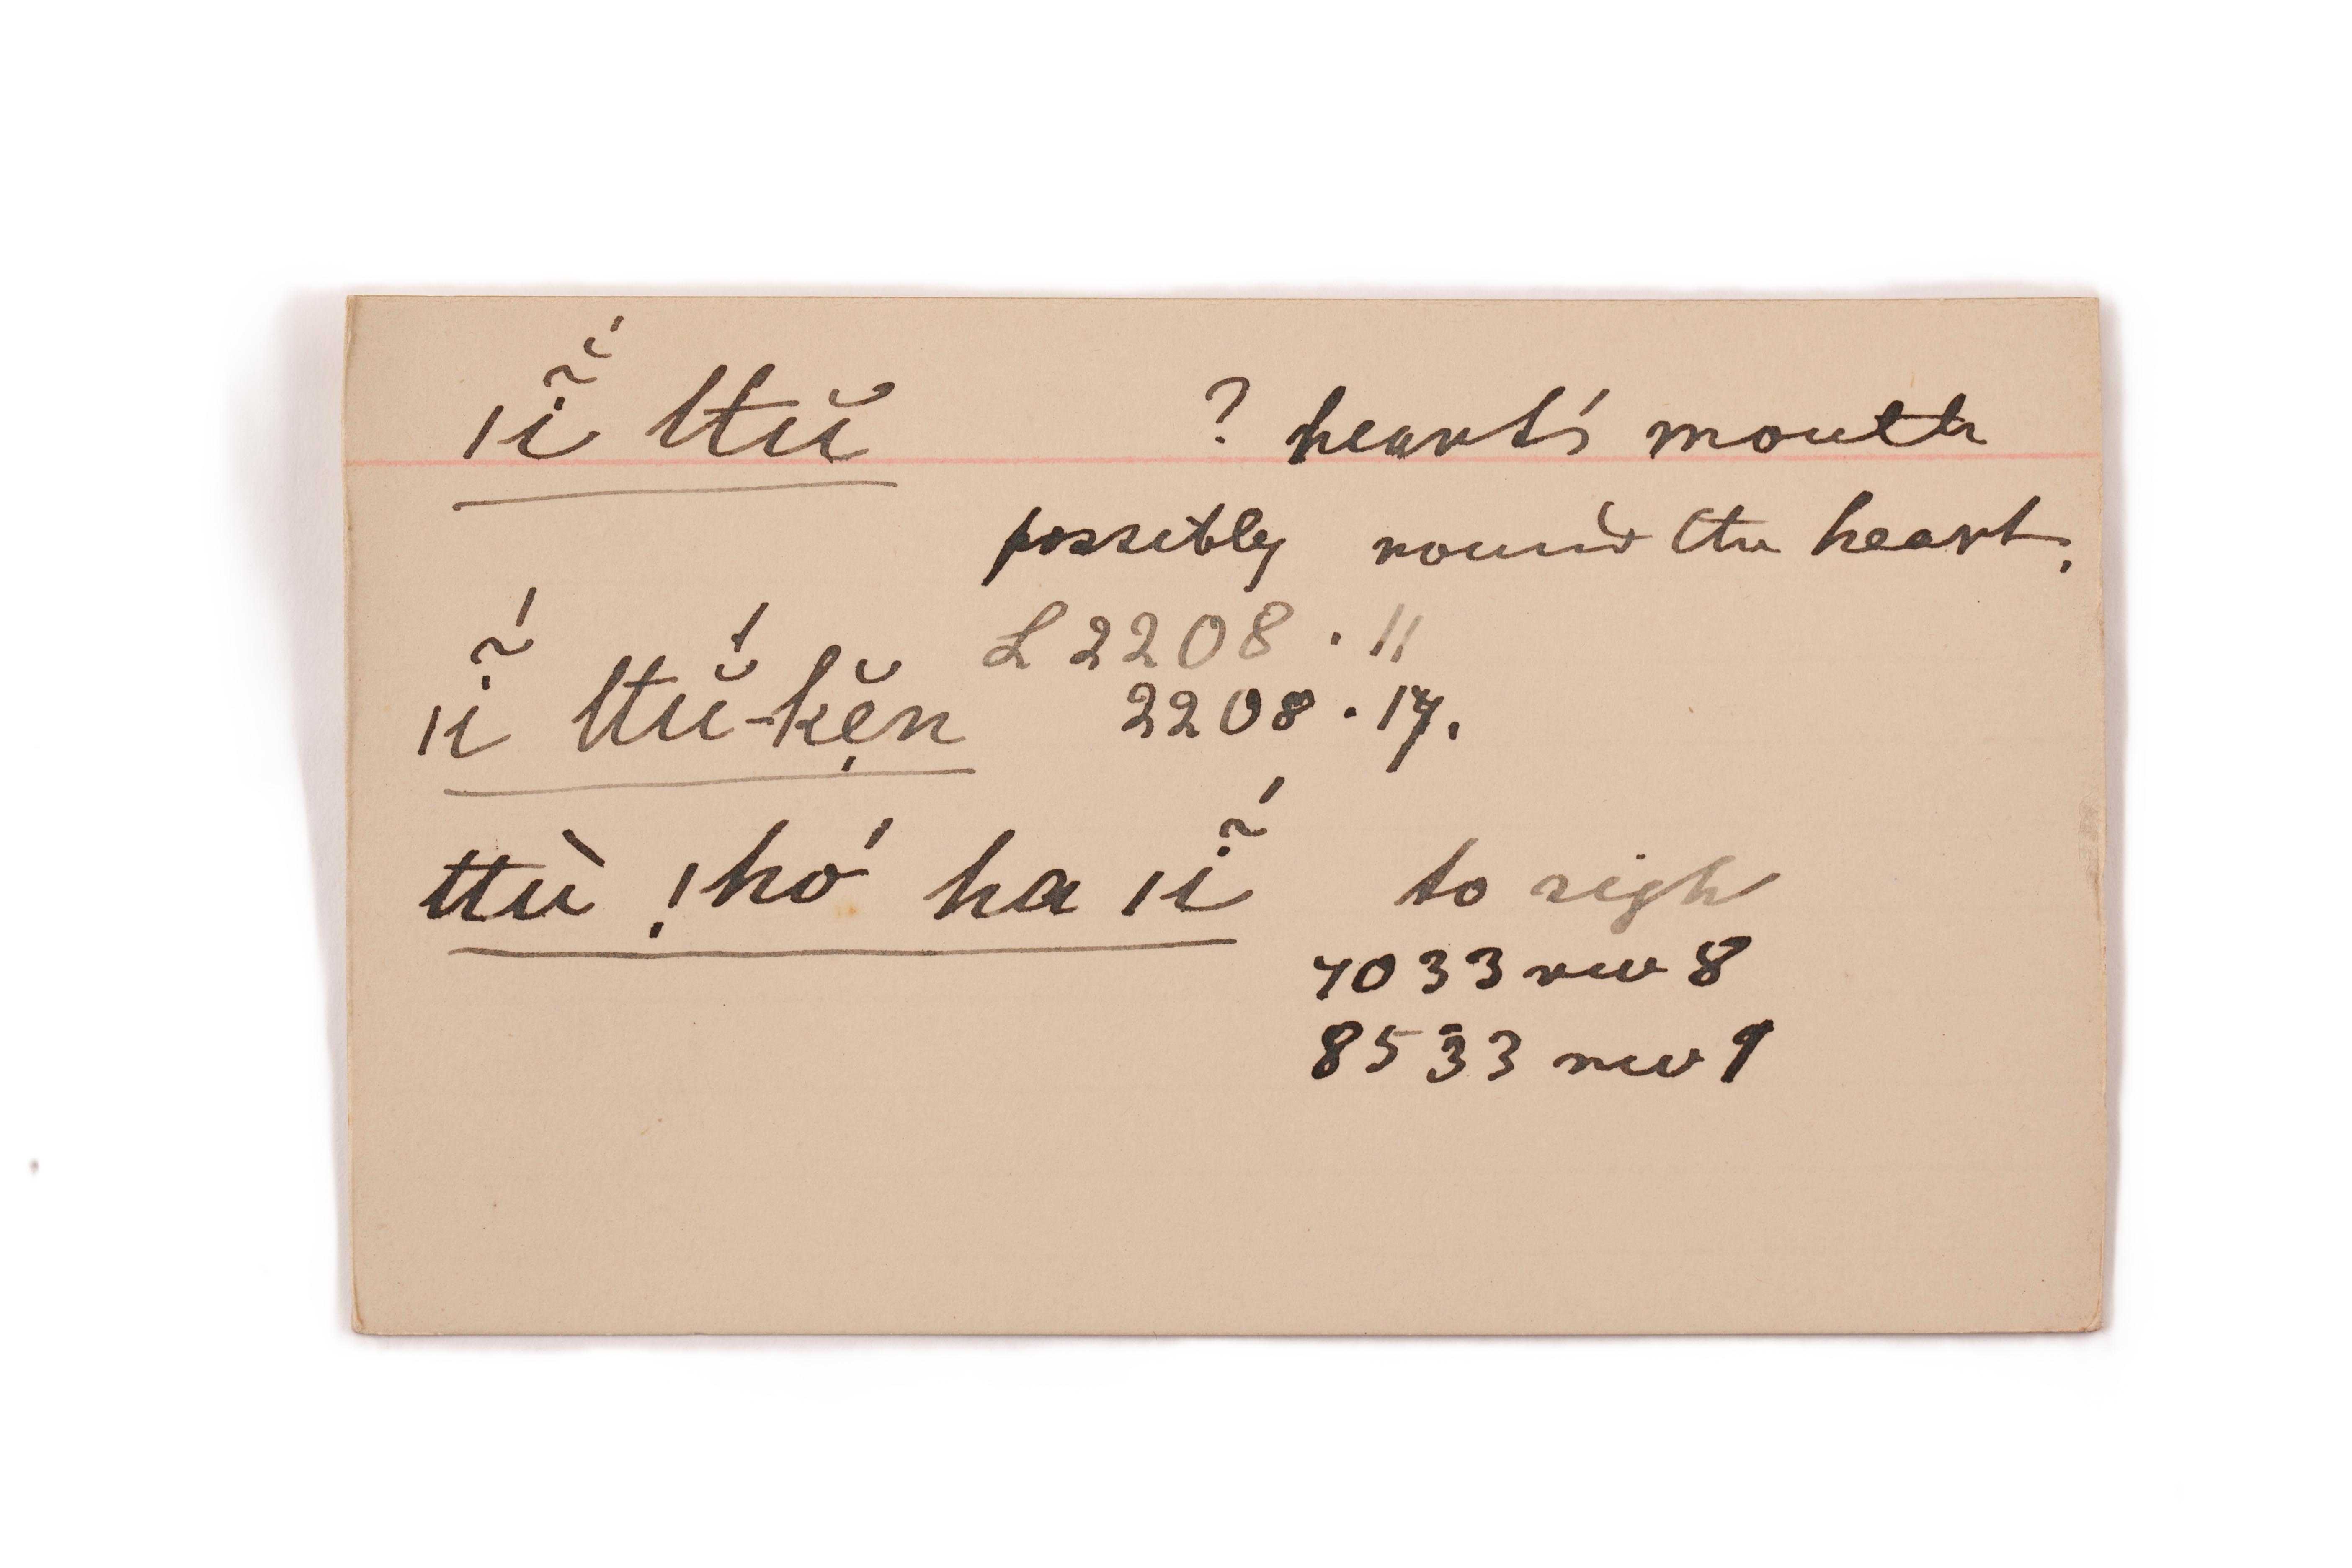 ıĩ́ ttŭ ? heart's mouth
possibly round the heart.
L 2208 . 11
ıĩ́ ttŭ́-kẹ̆n 2208 . 17.
ttù !̣hó ha ıĩ́ to sigh
7033 rev 8
8533 rev 9